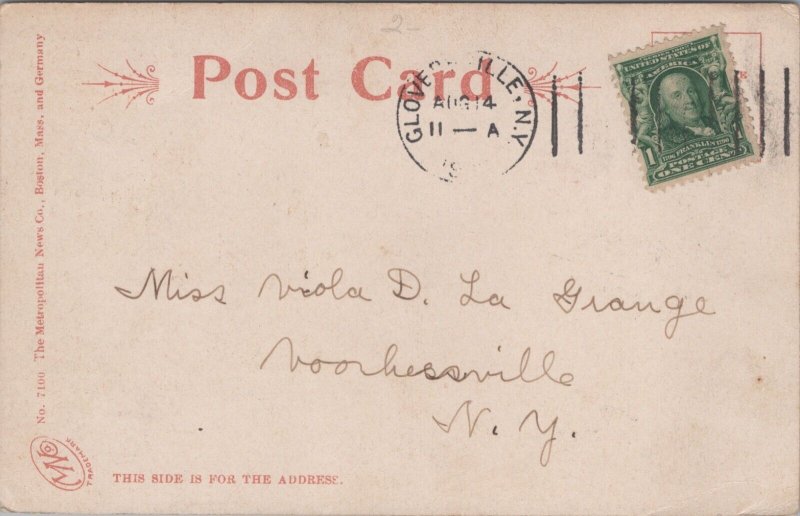 2-
Post Card
GLOVERSVILLE, N.Y.
AUG 14
11 — A
UNITED STATES OF
AMERICA
1
FRANKLIN
POSTAGE
ONE CENT
Miss Viola D. La Grange
Voorhessville
N. Y.
THIS SIDE IS FOR THE ADDRESS.
No. 7100 The Metropolitan News Co., Boston, Mass. and Germany
TRADEMARK